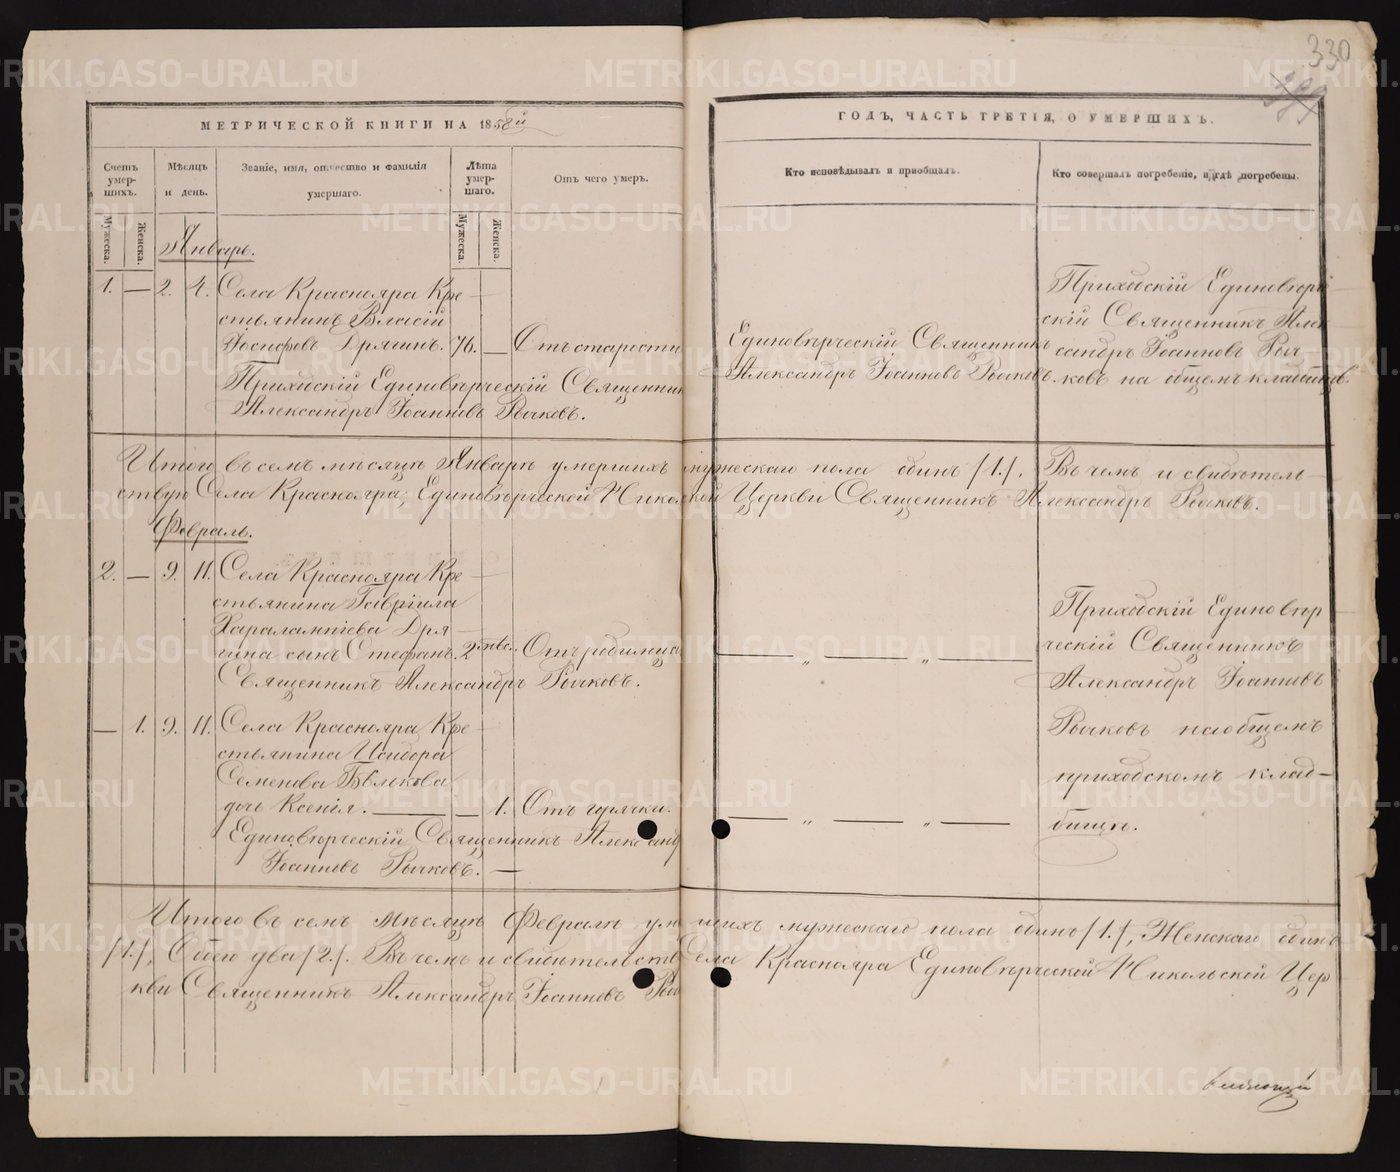 330
МЕТРИЧЕСКОЙ КНИГИ НА 1858й
ГОДЪ, ЧАСТЬ ТРЕТІЯ, О УМЕРШИХЪ.
Счетъ умер-шихъ.
Мужеска.
Женска.
Мѣсяцъ и день.
Званіе, имя, отчество и фамилія умершаго.
Лѣта умер-шаго.
Мужеска.
Женска.
Отъ чего умеръ.
Кто исповѣдывалъ и приобщалъ.
Кто совершалъ погребеніе, и гдѣ погребены.
Январь.
1. — 2. 4. Села Краснояра Кре-
стьянинъ Власій
Іосифовъ Дрягинъ. 76. — Отъ старости
Приходскій Единовѣрческій Священник
Александръ Іоанновъ Рычковъ.
Единовѣрческій Священникъ
Александръ Іоанновъ Рычковъ.
Приходскій Единовѣрче
скій Священникъ Алек
сандръ Іоанновъ Рыч
ковъ на общемъ кладбищѣ.
Итого въ семъ мѣсяцѣ Январѣ умершихъ мужескаго пола одинъ /1./. Въ чемъ и свидѣтель-
ствую Села Краснояра, Единовѣрческой Николской Церкви Священникъ Александръ Рычковъ.
Февраль.
2. — 9. 11. Села Краснояра Кре-
стьянина Гавріила
Харалампіева Дря-
гина сынъ Стефанъ. 2 Отъ родимца
Священникъ Александръ Рычковъ.
— „ — „ —
Приходскій Единовѣр
ческій Священникъ
Александръ Іоанновъ
Рычковъ на общемъ
приходскомъ клад-
бищѣ.
— 1. 9. 11. Села Краснояра Кре-
стьянина Исидора
Семенова Бѣлькова
дочь Ксенія. — — 1. Отъ горячки.
Единовѣрческій Священникъ Александ
Іоанновъ Рычковъ. —
— „ — „ —
Итого въ семъ мѣсяцѣ Февралѣ ум шихъ мужескаго пола одинъ /1./, Женскаго одинъ
/1./, Обоего два /2./. Въ чемъ и свидѣтельств Села Краснояра Единовѣрческой Никольской Цер
кви Священникъ Александръ Іоанновъ Рыч
METRIKI.GASO-URAL.RU